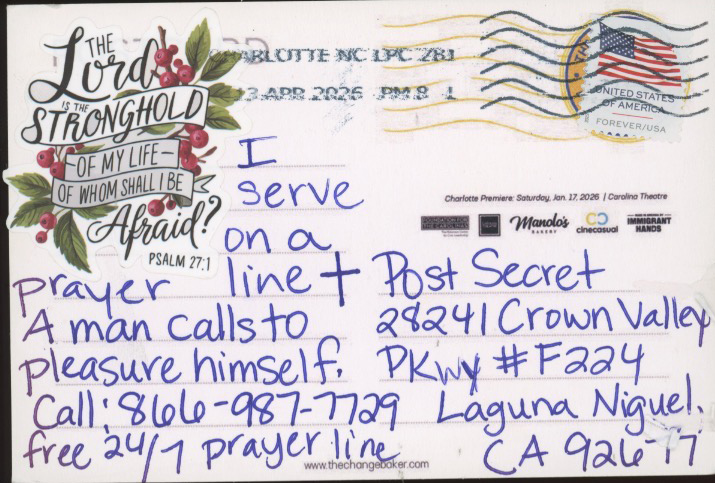 THE
Lord
IS THE
STRONGHOLD
OF MY LIFE
OF WHOM SHALL I BE
Afraid?
PSALM 27:1
CHARLOTTE NC LPC 281
APR 2026 PM 8 L
UNITED STATES
OF AMERICA
FOREVER/USA
Charlotte Premiere: Saturday, Jan. 17, 2026 | Carolina Theatre
Manolo's
BAKERY
cinecasual
IMMIGRANT
HANDS
I
serve
on a
prayer line +
A man calls to
pleasure himself.
Call: 866-987-7729
free 24/7 prayer line
Post Secret
28241 Crown Valley
PKwy #F224
Laguna Niguel.
CA 92677
www.thechangebaker.com